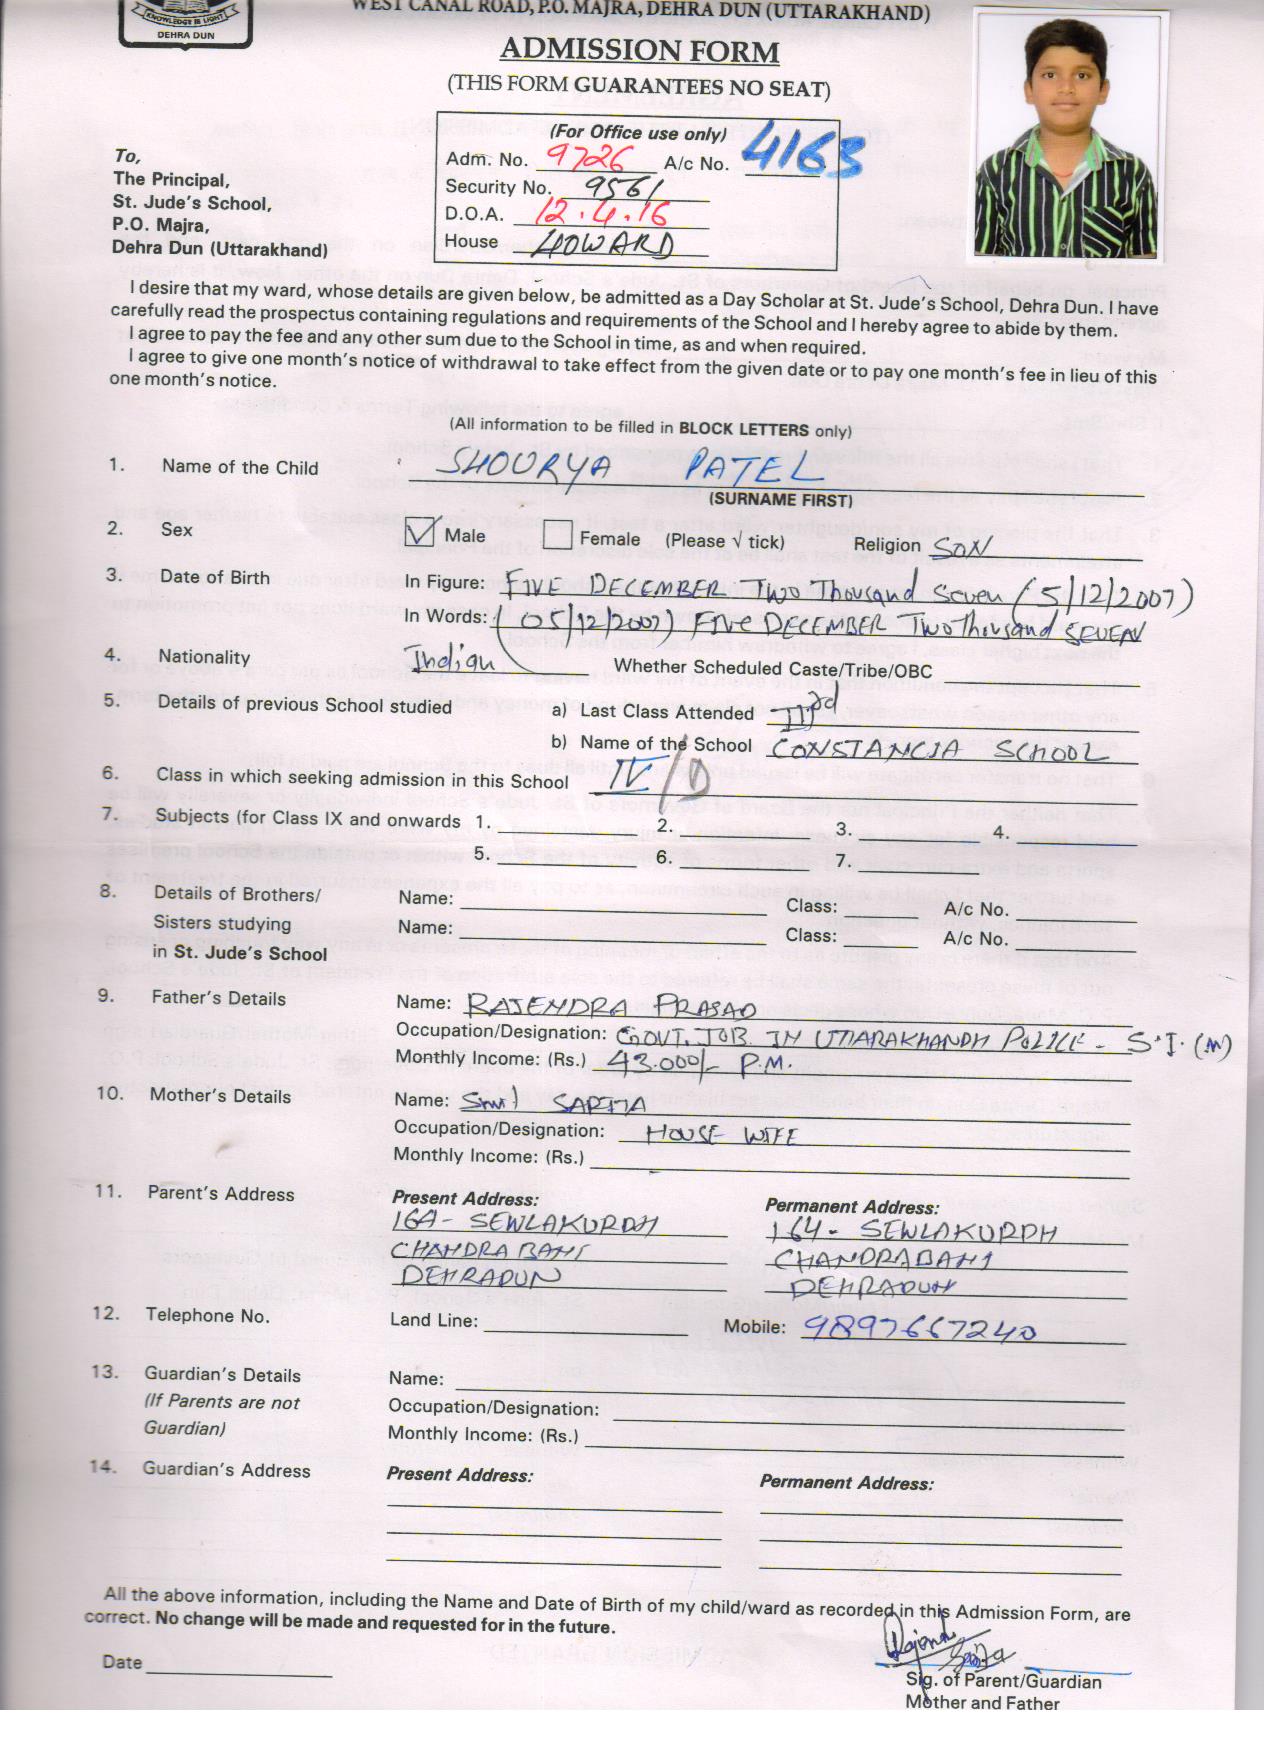 KNOWLEDGE IS LIGHT
DEHRA DUN
WEST CANAL ROAD, P.O. MAJRA, DEHRA DUN (UTTARAKHAND)
ADMISSION FORM
(THIS FORM GUARANTEES NO SEAT)
(For Office use only)
Adm. No. 9726 A/c No. 4163
Security No. 9561
D.O.A. 12.4.16
House HOWARD
To,
The Principal,
St. Jude's School,
P.O. Majra,
Dehra Dun (Uttarakhand)
I desire that my ward, whose details are given below, be admitted as a Day Scholar at St. Jude's School, Dehra Dun. I have
carefully read the prospectus containing regulations and requirements of the School and I hereby agree to abide by them.
I agree to pay the fee and any other sum due to the School in time, as and when required.
I agree to give one month's notice of withdrawal to take effect from the given date or to pay one month's fee in lieu of this
one month's notice.
(All information to be filled in BLOCK LETTERS only)
1. Name of the Child SHOURYA PATEL
(SURNAME FIRST)
2. Sex Male Female (Please √ tick) Religion SON
3. Date of Birth In Figure: FIVE DECEMBER Two Thousand Seven (5/12/2007)
In Words: (05/12/2007) FIVE DECEMBER Two Thousand SEVEN
4. Nationality Indian Whether Scheduled Caste/Tribe/OBC
5. Details of previous School studied a) Last Class Attended IIIrd
b) Name of the School CONSTANCIA SCHOOL
6. Class in which seeking admission in this School IV/D
7. Subjects (for Class IX and onwards 1. 2. 3. 4.
5. 6. 7.
8. Details of Brothers/ Name: Class: A/c No.
Sisters studying Name: Class: A/c No.
in St. Jude's School
9. Father's Details Name: RAJENDRA PRASAD
Occupation/Designation: GOVT. JOB IN UTTARAKHANDH POLICE - S.I. (M)
Monthly Income: (Rs.) 43.000/- P.M.
10. Mother's Details Name: Smt SARITA
Occupation/Designation: HOUSE WIFE
Monthly Income: (Rs.)
11. Parent's Address Present Address: Permanent Address:
164- SEWLAKURDH 164- SEWLAKURDH
CHANDRABANI CHANDRABANI
DEHRADUN DEHRADUN
12. Telephone No. Land Line: Mobile: 9897667240
13. Guardian's Details Name:
(If Parents are not Occupation/Designation:
Guardian) Monthly Income: (Rs.)
14. Guardian's Address Present Address: Permanent Address:
All the above information, including the Name and Date of Birth of my child/ward as recorded in this Admission Form, are
correct. No change will be made and requested for in the future.
Date
Sig. of Parent/Guardian
Mother and Father